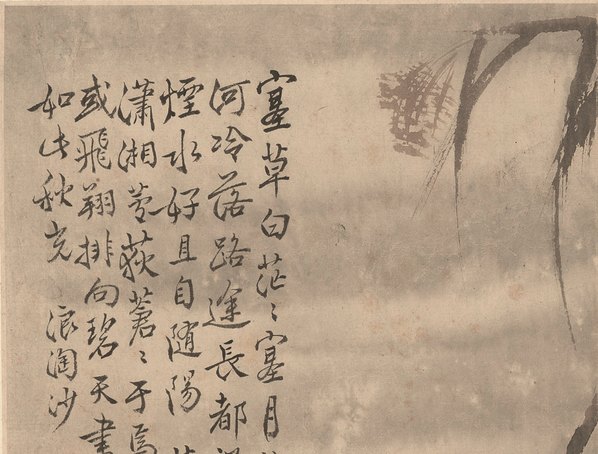 塞草白茫〻塞月
河冷落路途長都
煙水好且自随陽
瀟湘蘆荻蒼〻于焉
或飛翔排向碧天書
如此秋光 浪淘沙